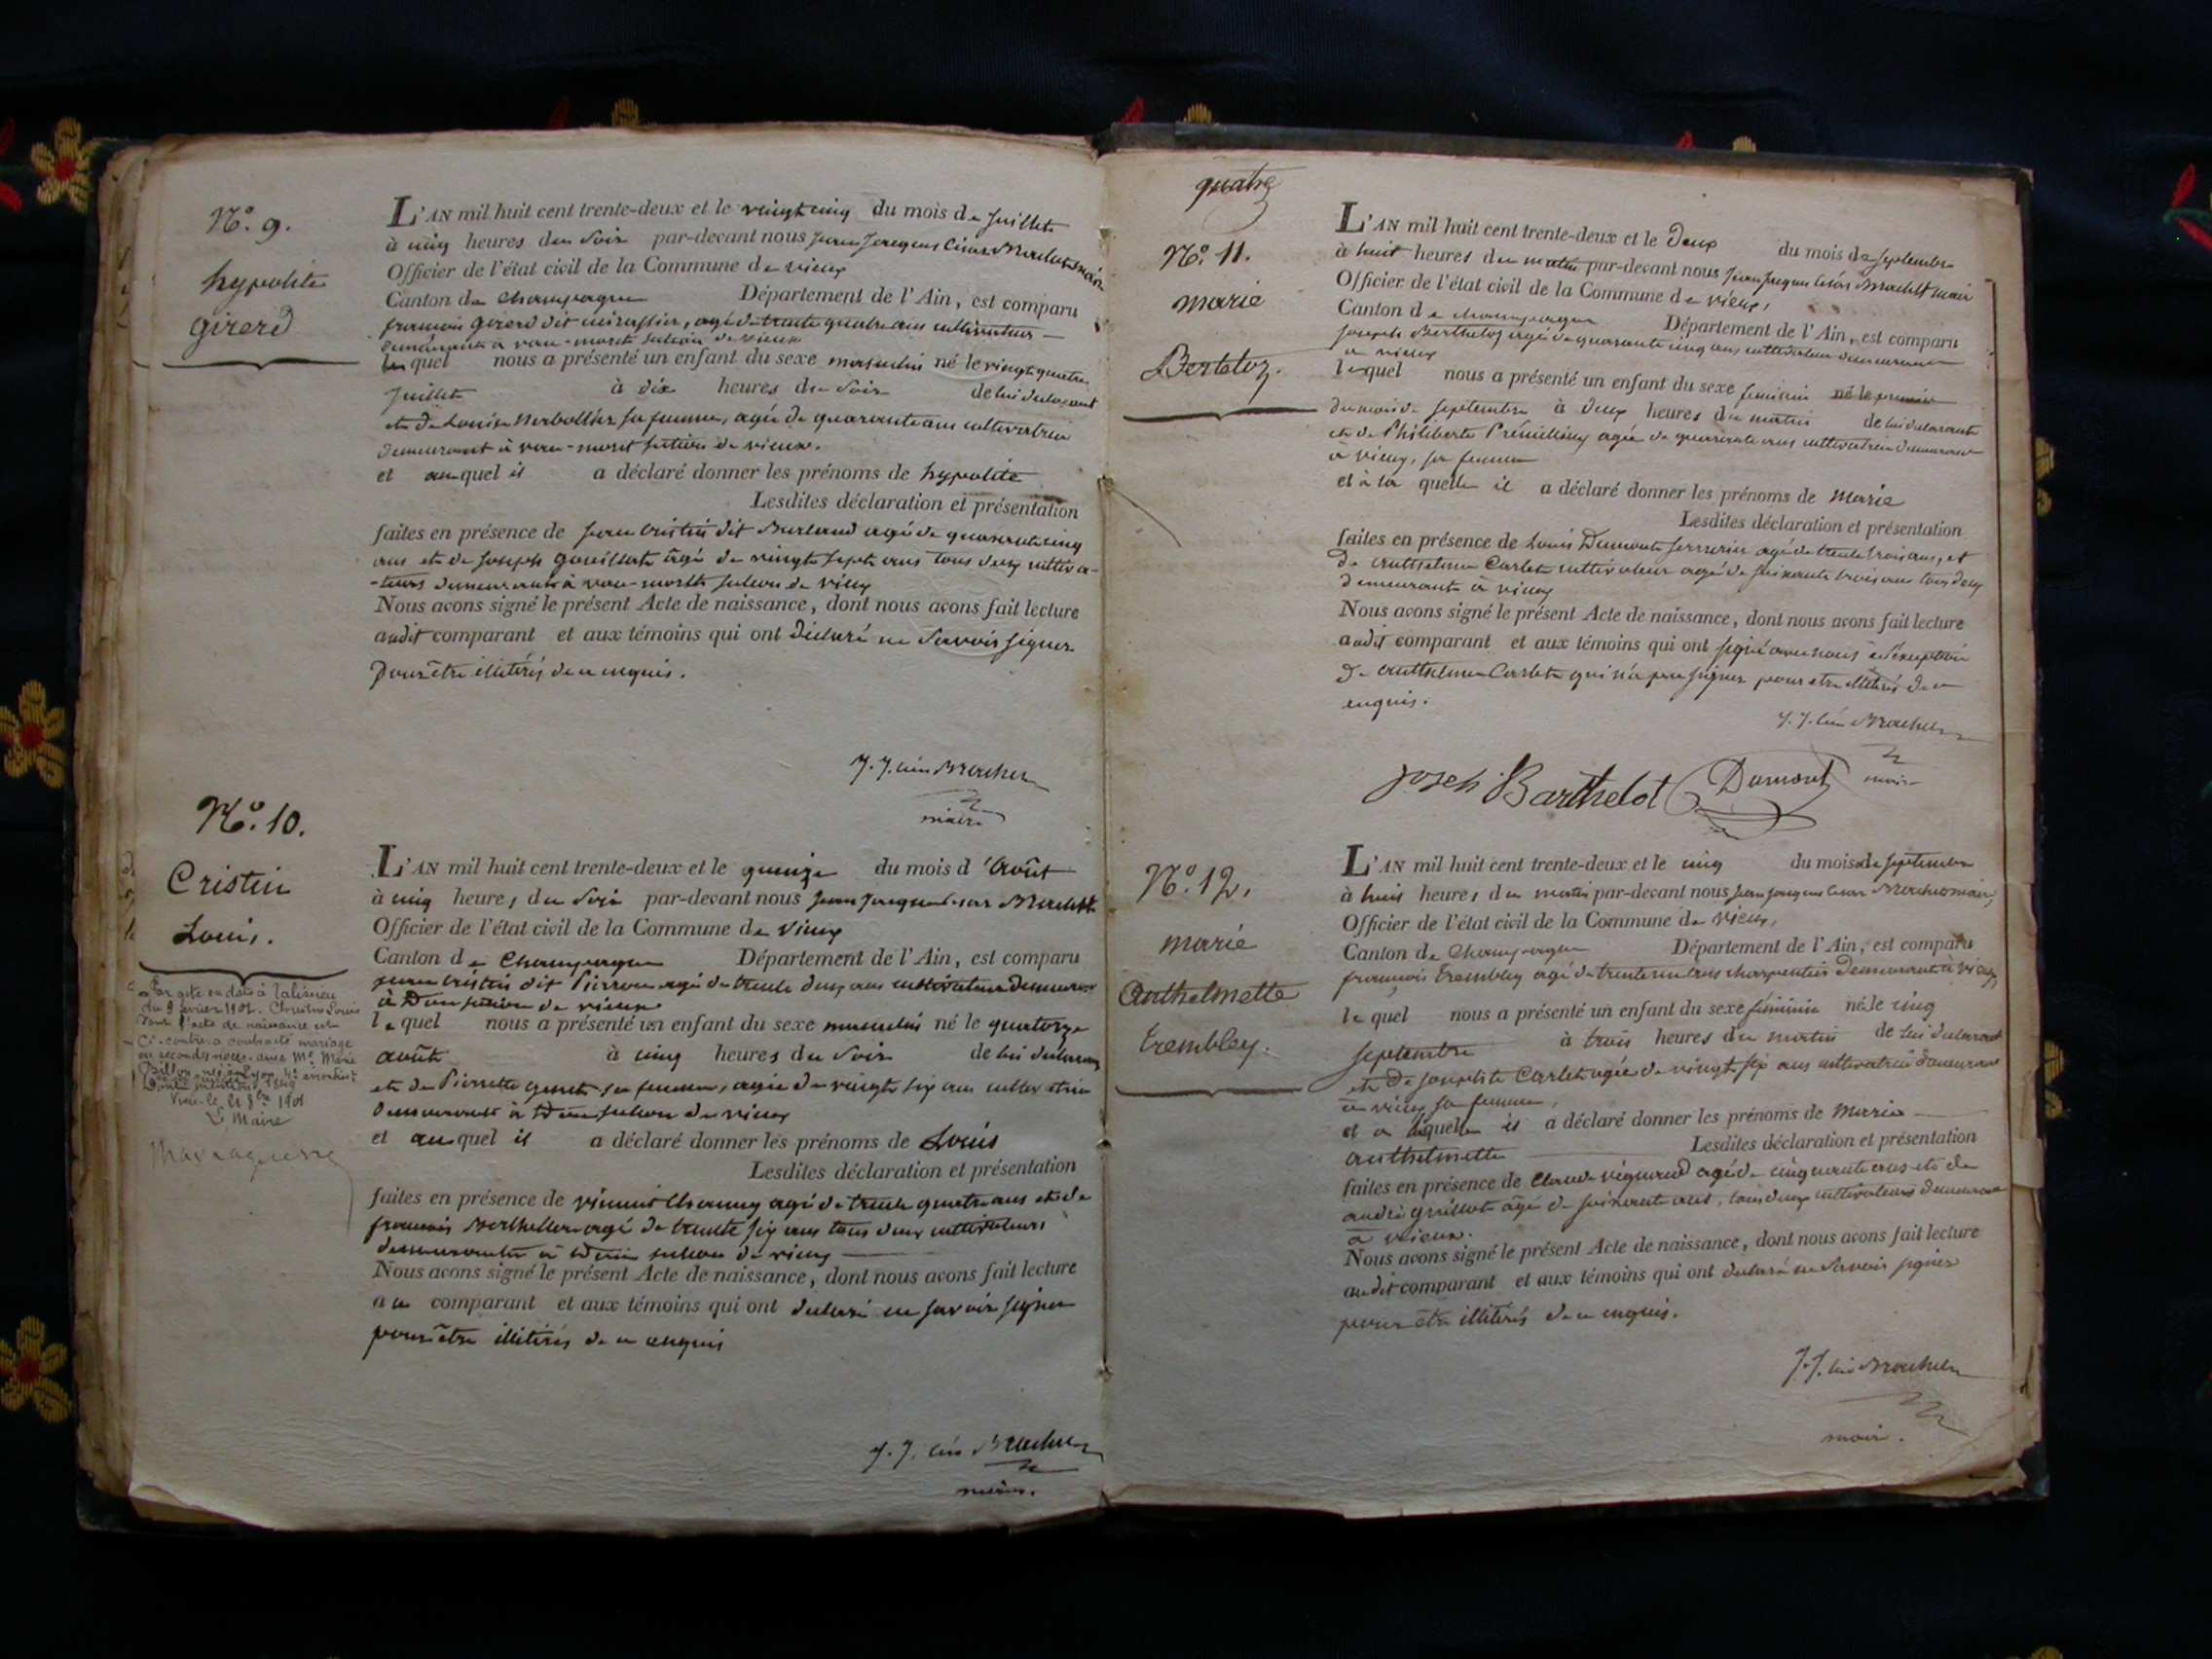 N.º 9.
hypolite
girerd
L'AN mil huit cent trente-deux et le vingt cinq du mois de juillet
à cinq heures du soir par-devant nous jean jacques César Brochet maire
Officier de l'état civil de la Commune de vieux
Canton de Champagne Département de l'Ain, est comparu
françois girerd dit agé de trente quatre ans cultivateur
demeurant à vau-mort section de vieux
lequel nous a présenté un enfant du sexe masculin né le vingt quatre
juillet à dix heures du soir de lui déclarant
et de Louise sa femme, agée de quarante ans cultivatrice
demeurant à vau-mort section de vieux.
et auquel il a déclaré donner les prénoms de hypolite
Lesdites déclaration et présentation
faites en présence de jean cristin dit agé de quarante cinq
ans et de joseph agé de vingt sept ans tous deux cultiva-
-teurs demeurants à vau-mort section de vieux
Nous avons signé le présent Acte de naissance, dont nous avons fait lecture
audit comparant et aux témoins qui ont déclaré ne savoir signer
pour être illitérés de ce enquis.
J. J. Brochet
maire
N.º 10.
Cristin
Louis.
Par acte en date à Talissieu
du 9 février 1901. Christin Louis
dont l'acte de naissance est
ci-contre a contracté mariage
en secondes noces avec Me Marie
Billon, née à Lyon, 4e arrondisst
1849
Vieu le 1901
Le Maire
L'AN mil huit cent trente-deux et le quinze du mois d'Août
à cinq heures du soir par-devant nous jean jacques Cesar Brochet
Officier de l'état civil de la Commune de Vieux
Canton de Champagne Département de l'Ain, est comparu
jean cristin dit Pierron agé de trente deux ans cultivateur demeurant
à section de vieux
lequel nous a présenté un enfant du sexe masculin né le quatorze
août à cinq heures du soir de lui déclarant
et de Pierrette genet sa femme, agée de vingt six ans cultivatrice
demeurant à section de vieux
et auquel il a déclaré donner les prénoms de Louis
Lesdites déclaration et présentation
faites en présence de vincent agé de trente quatre ans et de
françois agé de trente six ans tous deux cultivateurs
demeurants à section de vieux
Nous avons signé le présent Acte de naissance, dont nous avons fait lecture
au comparant et aux témoins qui ont déclaré ne savoir signer
pour être illitérés de ce enquis
J. J. Brochet
maire.
quatre
N.º 11.
marie
Berteloz.
L'AN mil huit cent trente-deux et le deux du mois de septembre
à huit heures du matin par-devant nous jean jacques César Brochet maire
Officier de l'état civil de la Commune de vieux,
Canton de champagne Département de l'Ain, est comparu
joseph Bertheloz agé de quarante cinq ans cultivateur demeurant
à vieux
lequel nous a présenté un enfant du sexe feminin né le premier
du mois de septembre à deux heures du matin de lui déclarant
et de Philiberte agée de quarante ans cultivatrice demeurant
à vieux, sa femme
et à la quelle il a déclaré donner les prénoms de marie
Lesdites déclaration et présentation
faites en présence de Louis Dumont agé de trente trois ans, et
de anthelme Carlet cultivateur agé de soixante trois ans tous deux
demeurants à vieux
Nous avons signé le présent Acte de naissance, dont nous avons fait lecture
audit comparant et aux témoins qui ont signé avec nous à l'exception
de anthelme Carlet qui n'a pu signer pour etre illitérés de ce
enquis.
J. J. Brochet
maire
joseh Barthelot Dumont
N.º 12.
marie
Anthelmette
Trembley.
L'AN mil huit cent trente-deux et le cinq du mois de septembre
à huit heures du matin par-devant nous jean jacques Cesar Brochet maire,
Officier de l'état civil de la Commune de vieux,
Canton de Champagne Département de l'Ain, est comparu
françois Trembley agé de trente ans charpentier demeurant à vieux
lequel nous a présenté un enfant du sexe féminin né le cinq
septembre à trois heures du matin de lui déclarant
et de josephte Carlet agée de vingt six ans cultivatrice demeurant
à vieux sa femme,
et a laquelle il a déclaré donner les prénoms de Marie
anthelmette Lesdites déclaration et présentation
faites en présence de Claude agé de cinquante ans et de
andré agé de soixante ans, tous deux cultivateurs demeurant
à vieux.
Nous avons signé le présent Acte de naissance, dont nous avons fait lecture
audit comparant et aux témoins qui ont déclaré ne savoir signer
pour etre illitérés de ce enquis.
J. J. Brochet
maire.